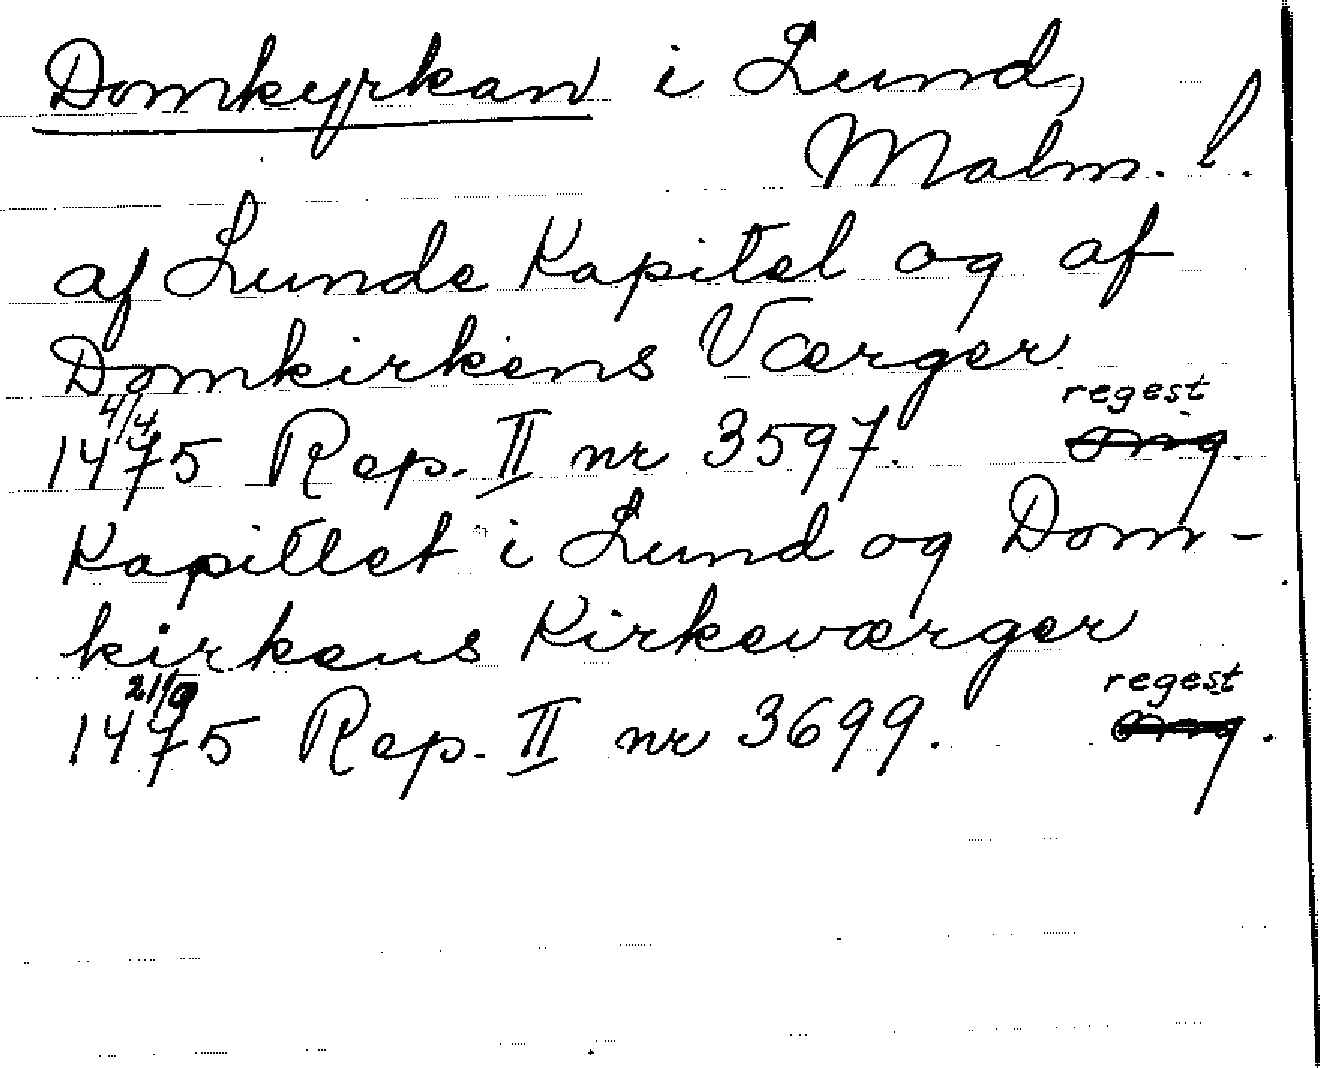 Domkyrkan i Lund,
Malm. l.
af Lunde Kapitel og af
Domkirkens Værger
4/4 regest
1475 Rep. II nr 3597. omg.
Kapitlet i Lund og Dom-
kirkens Kirkeværger
21/9 regest
1475 Rep. II nr 3699. omg.